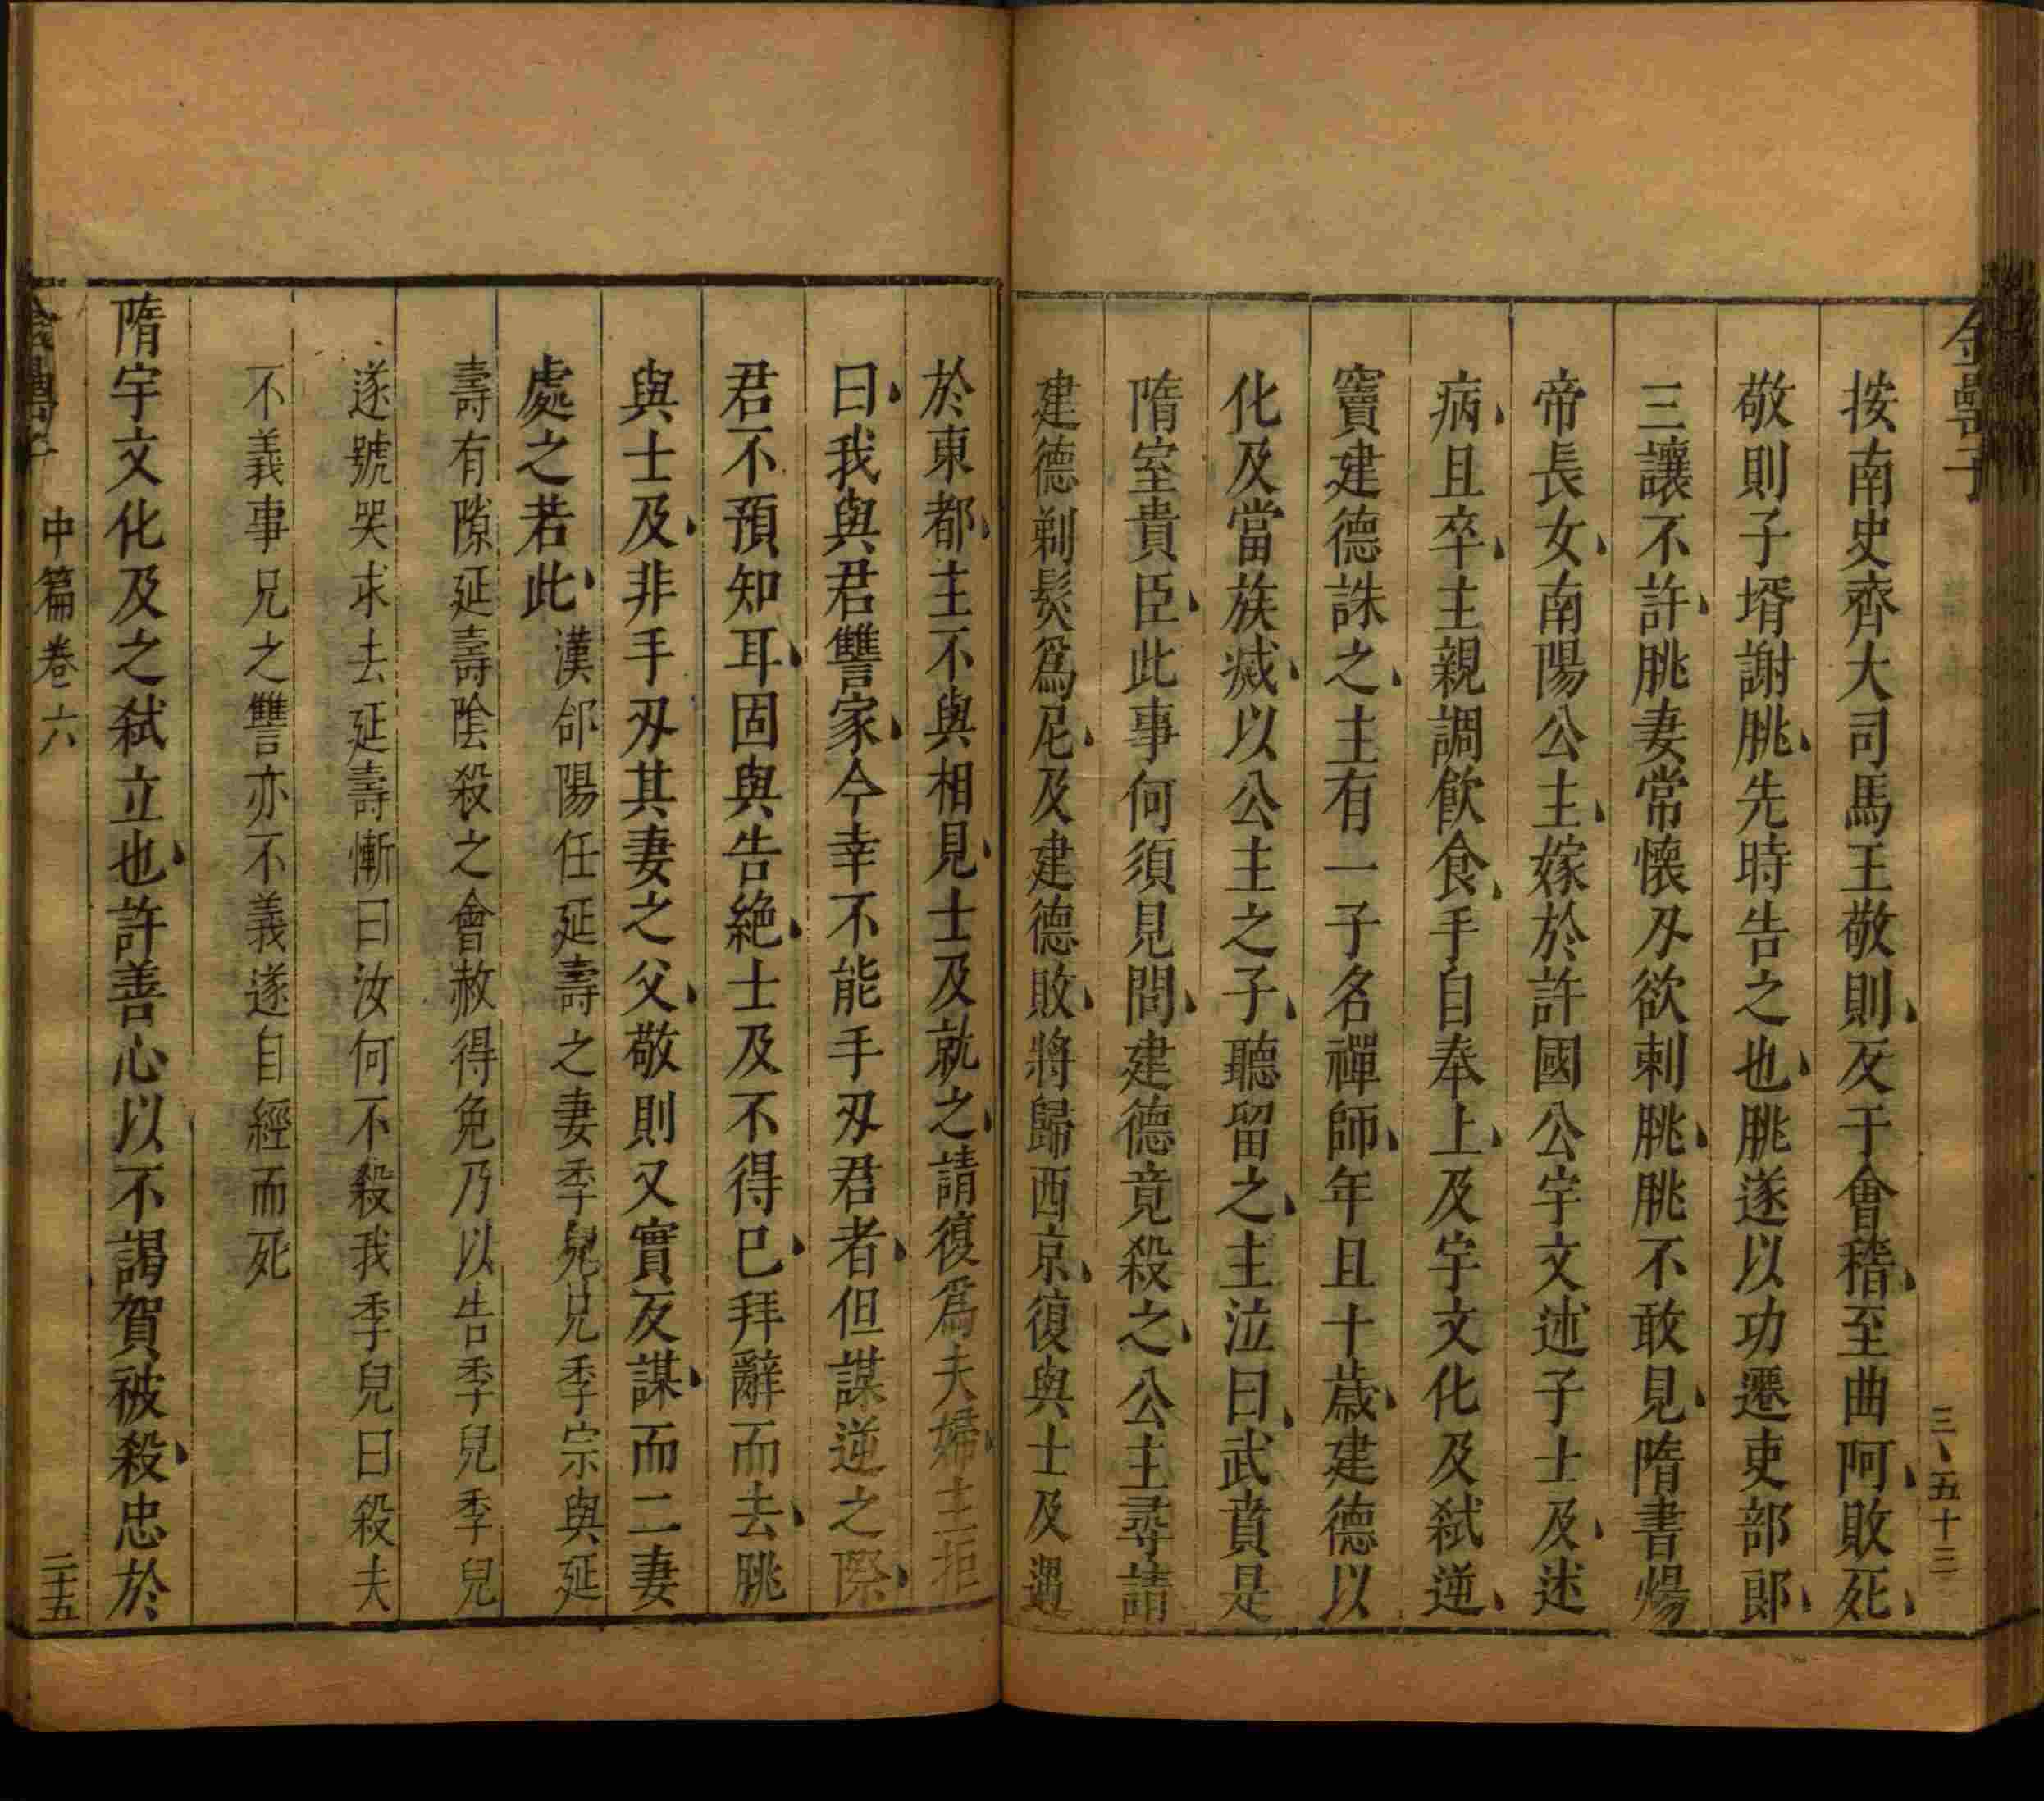 金罍子
三、五十三
按南史齊大司馬王敬則反于會稽至曲阿敗死
敬則子壻謝朓先時告之也朓遂以功遷吏部郎
三讓不許朓妻常懷刃欲刺朓朓不敢見隋書煬
帝長女南陽公主嫁於許國公宇文述子士及述
病且卒主親調飲食手自奉上及宇文化及弑逆
竇建德誅之主有一子名禪師年且十歲建德以
化及當族滅以公主之子聽留之主泣曰武賁是
隋室貴臣此事何須見問建德竟殺之公主尋請
建德剃髮爲尼及建德敗將歸西京復與士及遇
於東都主不與相見士及就之請復爲夫婦主拒
曰我與君讐家今幸不能手刃君者但謀逆之際
君不預知耳固與告絶士及不得已拜辭而去朓
與士及非手刃其妻之父敬則又實反謀而二妻
處之若此漢郃陽任延壽之妻季兒兄季宗與延
壽有隙延壽陰殺之會赦得免乃以告季兒季兒
遂號哭求去延壽慚曰汝何不殺我季兒曰殺夫
不義事兄之讐亦不義遂自經而死
隋宇文化及之弑立也許善心以不謁賀被殺忠於
中篇卷六
二十五